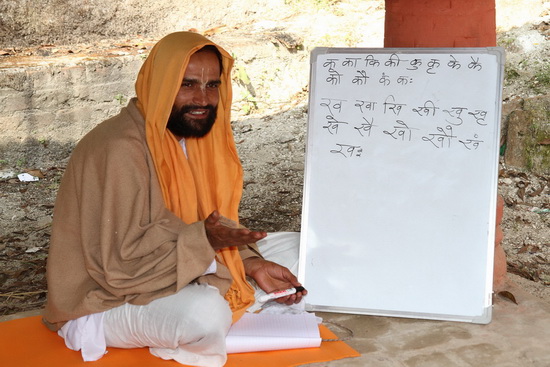 क का कि की कु कृ के कै
को कौ कं कः
ख खा खि खी खु खृ
खे खै खो खौ खं
खः